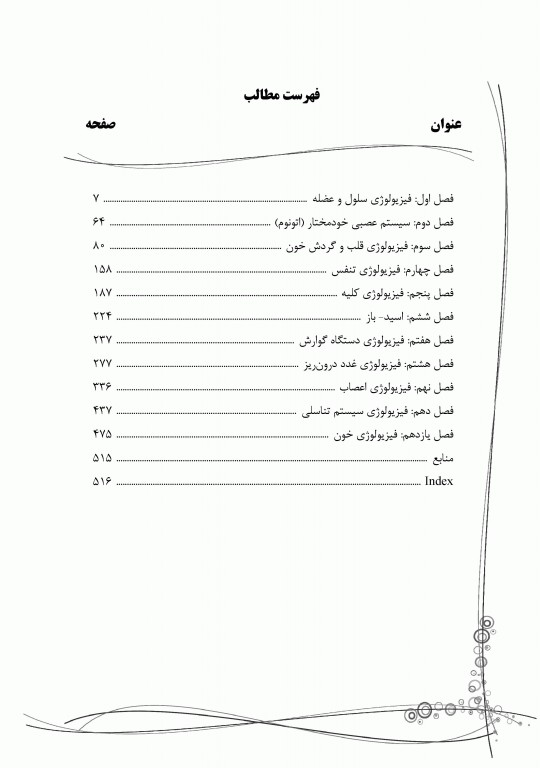 فهرست مطالب
عنوان صفحه
فصل اول: فیزیولوژی سلول و عضله ........ ۷
فصل دوم: سیستم عصبی خودمختار (اتونوم) ........ ۶۴
فصل سوم: فیزیولوژی قلب و گردش خون ........ ۸۰
فصل چهارم: فیزیولوژی تنفس ........ ۱۵۸
فصل پنجم: فیزیولوژی کلیه ........ ۱۸۷
فصل ششم: اسید- باز ........ ۲۲۴
فصل هفتم: فیزیولوژی دستگاه گوارش ........ ۲۳۷
فصل هشتم: فیزیولوژی غدد درون‌ریز ........ ۲۷۷
فصل نهم: فیزیولوژی اعصاب ........ ۳۳۶
فصل دهم: فیزیولوژی سیستم تناسلی ........ ۴۳۷
فصل یازدهم: فیزیولوژی خون ........ ۴۷۵
منابع ........ ۵۱۵
Index ........ ۵۱۶